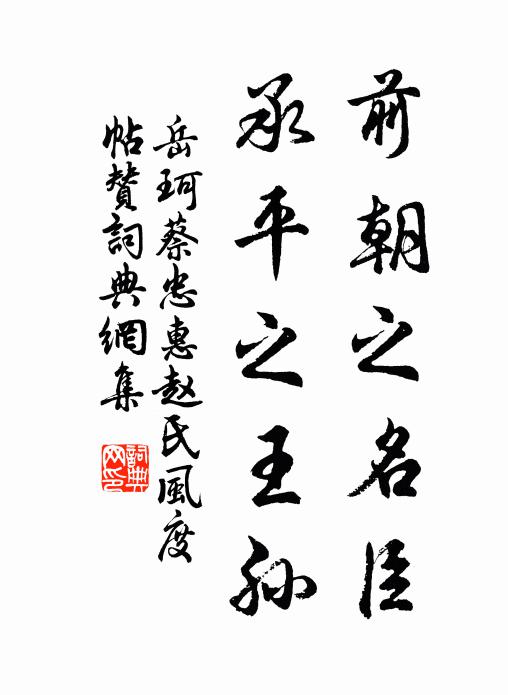 前朝之名臣
承平之王孙
岳珂蔡忠惠赵氏風度
帖赞詞典網集
詞典网印